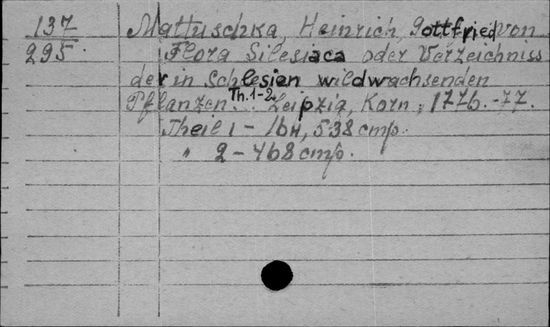 137 Mattuschka, Heinrich, Gottfried von
295. Flora Silesiaca oder Verzeichniss
der in Schlesien wildwachsenden
Pflanzen. Th. 1-2. Leipzig, Korn, 1776.-77.
Theil 1 - 164, 538 стр.
" 2 - 468 стр.